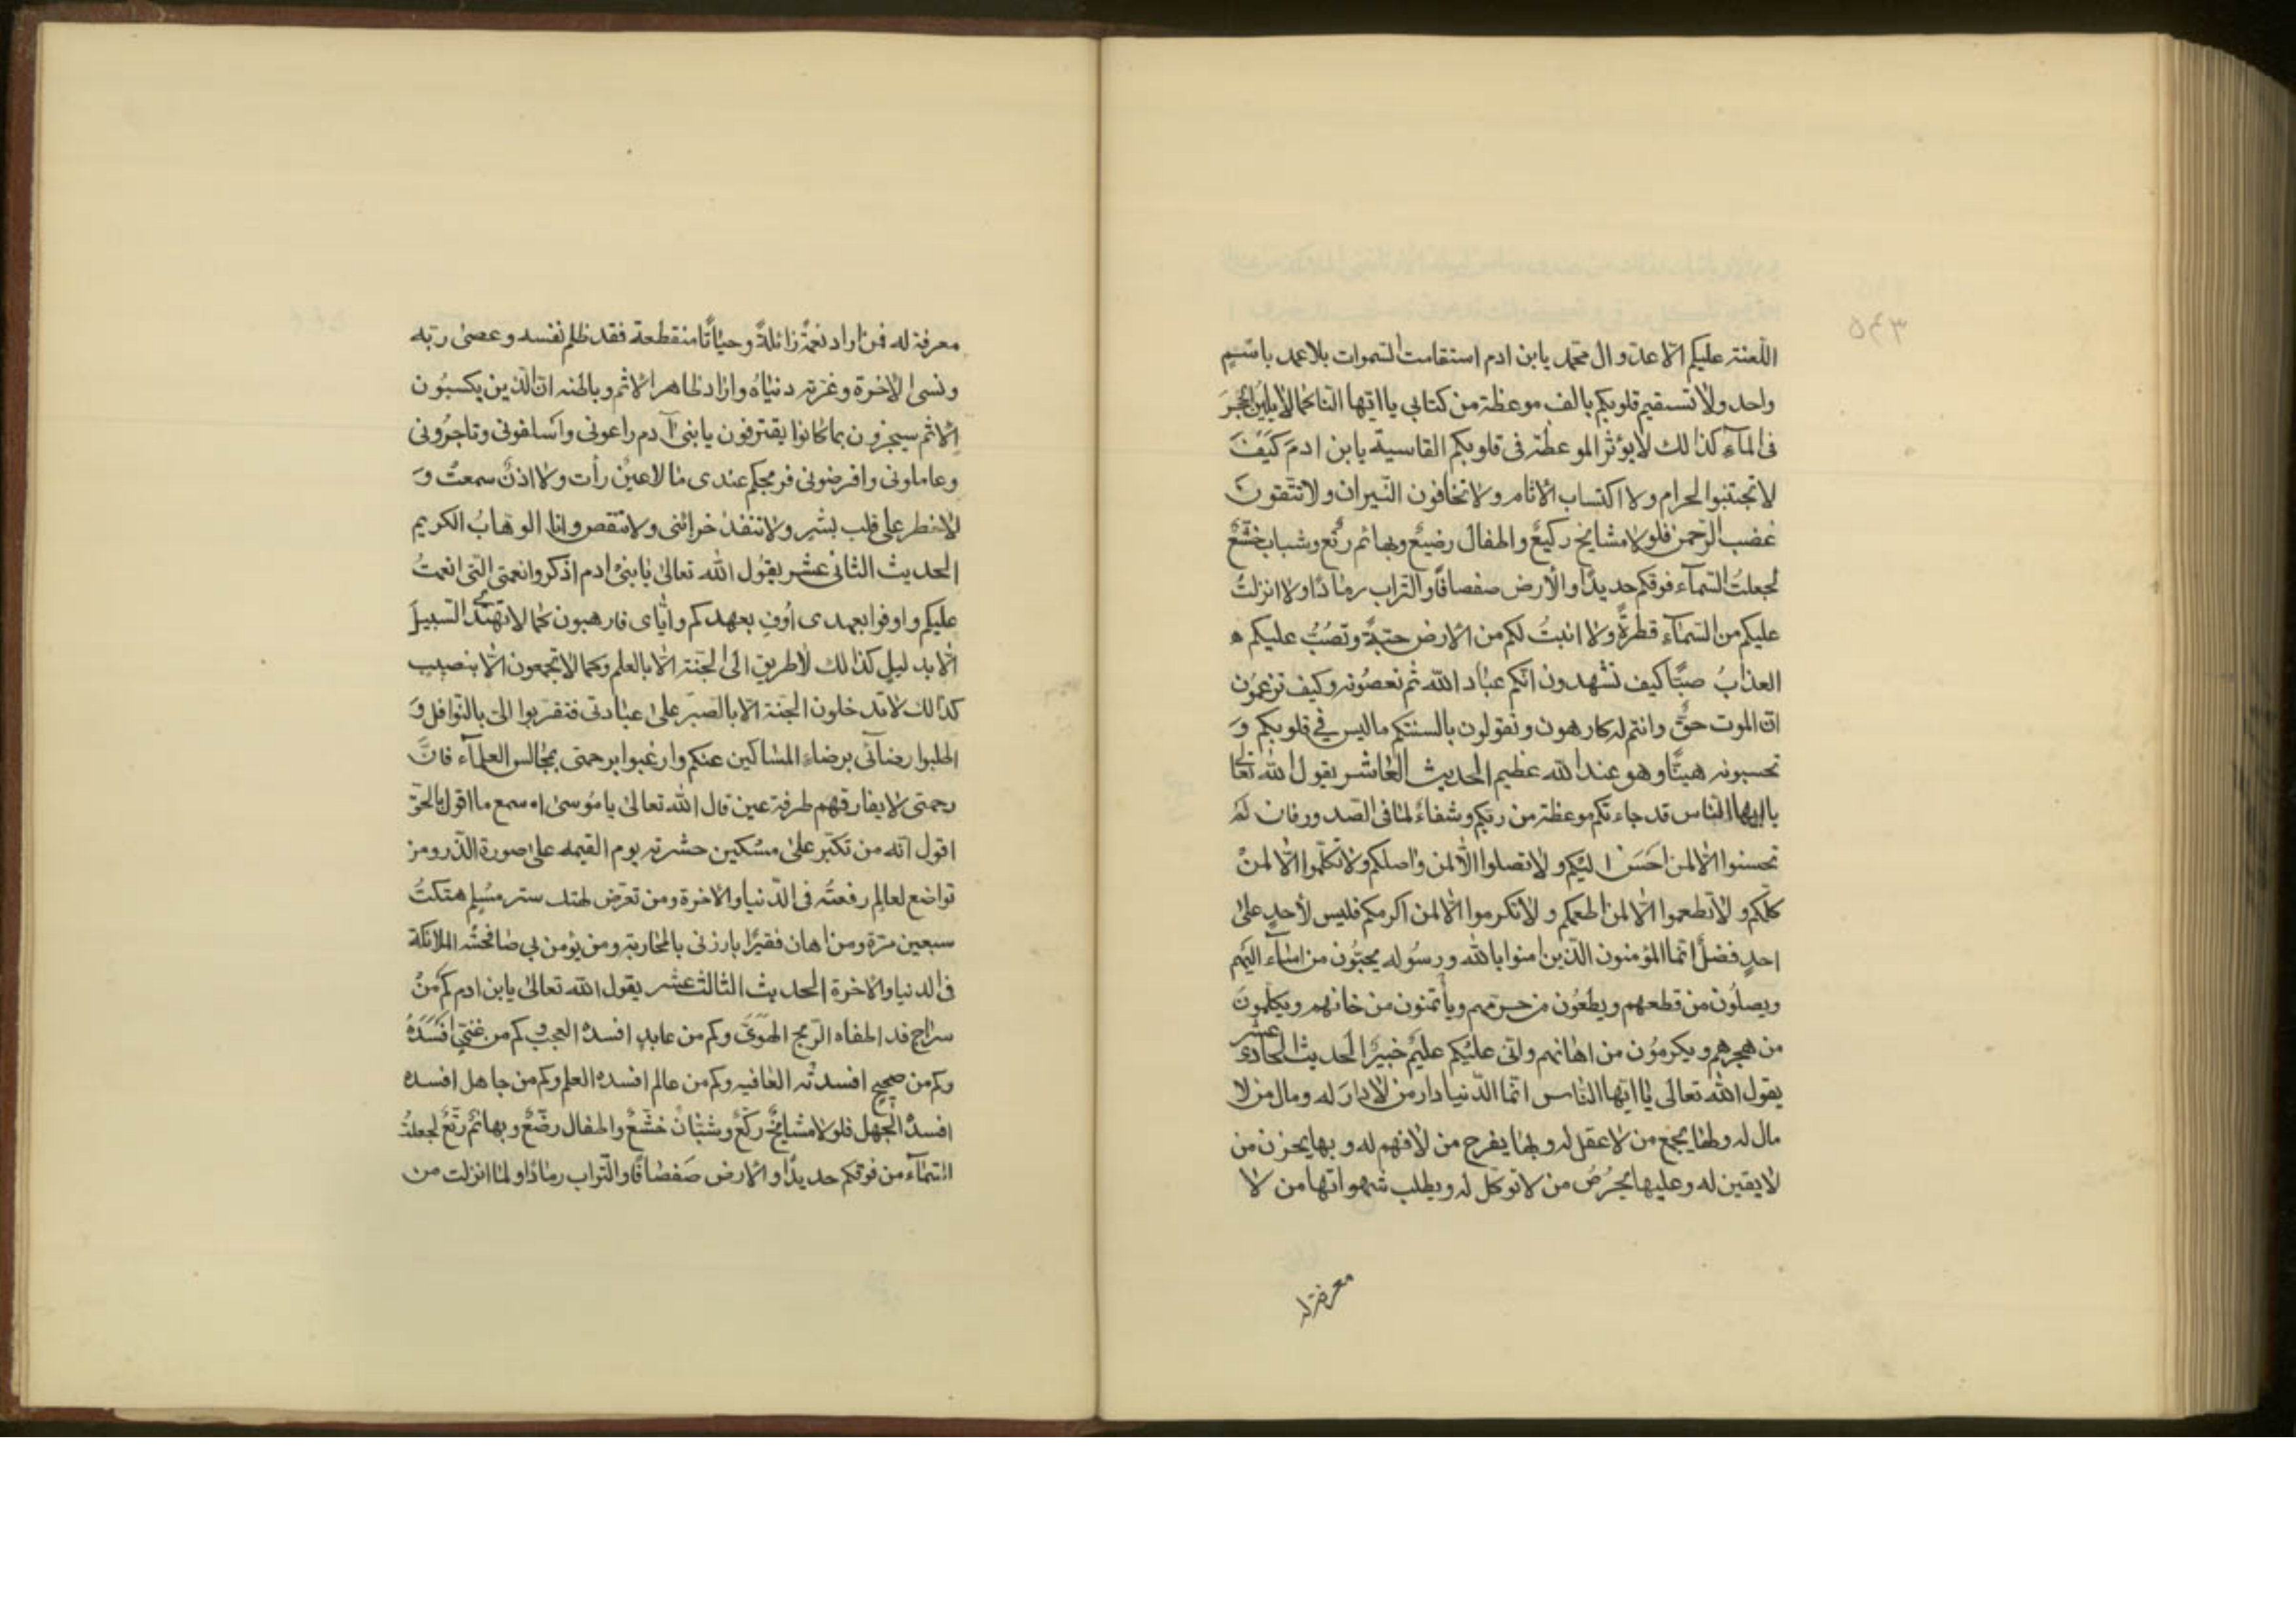 ٥٤٣
اللّعنة عليكم الّا عدّو ال محمّد يابن ادم استقامت السّموات بلا عمد باسم
واحد ولا تستقيم قلوبكم بالف موعظة من كتابي ياايّها النّاس كما لا يلين الحجر
فى المآء كذالك لا يؤثر الموعظة فى قلوبكم القاسية يابن ادم كيف
لا تجتنبوا الحرام ولا اكتساب الاثام ولا تخافون النّيران ولا تتّقون
غضب الرّحمن فلولا مشايخ ركيع واطفال رضيع وبهائم رتّع وشباب خشّع
لجعلت السّمآء فوقكم حديدًا والارض صفصافًا والتّراب رمادًا ولا انزلت
عليكم من السّمآء قطرةً ولا انبتُ لكم من الارض حبّةً وتصُبّ عليكم
العذابُ صبًّا كيف تشهدون انّكم عباد الله ثم تعصونه وكيف تزعمون
انّ الموت حقّ وانتم له كارهون وتقولون بالسنتكم ماليس في قلوبكم وَ
تحسبونه هيّنًا وهو عند الله عظيم الحديث العاشر يقول الله تعالى
ياايها النّاس قد جاءتكم موعظة من ربّكم وشفاءً لما فى الصّدور فان لم
تحسنوا الّا لمن احسن اليكم ولا تصلوا الّا لمن واصلكم ولا تكلّموا الّا لمن
كلّمكم ولا تطعموا الّا لمن اطعمكم ولا تكرموا الّا لمن اكرمكم فليس لأحدٍ على
احدٍ فضلٌ انّما المؤمنون الّذين امنوا بالله ورسوله يحبّون من اسآء اليهم
ويصلون من قطعهم ويطعُون من حرمهم ويأتمنون من خانهم ويكلّمون
من هجرهم ويكرمون من اهانهم وانّى عليكم عليمٌ خبيرٌ الحديث الحادى عشر
يقول الله تعالى ياايّها النّاس انّما الدّنيا دار من لا دار له ومال من لا
مال له ولها يجمع من لا عقل له وبها يفرح من لا فهم له وبها يحزن من
لا يقين له وعليها يحرُصُ من لا توكّل له ويطلب شهواتها من لا
معرفة له
معرفة له فمن اراد نعمةً زائلةً وحياتًا منقطعة فقد ظلم نفسه وعصى ربّه
ونسى الاخرة وغرّته دنياه واراد ظاهر الاثم وباطنه انّ الّذين يكسبون
الاثم سيجزون بما كانوا يقترفون يابنى آدم راعونى واسلفونى وتاجرونى
وعاملونى واقرضونى فربحكم عندى ما لا عينٌ رأت ولا اذنٌ سمعتْ وَ
لا خطر على قلب بشر ولا تنفد خزائنى ولا تنقص وانا الوهّابُ الكريم
الحديث الثانى عشر يقول الله تعالى يابنى ادم اذكروا نعمتى الّتى انعمتُ
عليكم واوفوا بعهدى اُوفِ بعهدكم وايّاى فارهبون كما لا تهتدى السّبيل
الّا بدليلٍ كذالك لا طريق الى الجنّة الّا بالعلم وكما لا تجمعون الّا بنصيب
كذالك لا تدخلون الجنّة الّا بالصّبر على عبادتى فتقرّبوا الىّ بالنّوافل وَ
اطلبوا رضآئى برضاء المساكين عنكم وارغبوا برحمتى بمجالس العلمآء فانّ
رحمتى لا يفارقهم طرفة عين قال الله تعالى يا موسى اسمع ما اقول بالحقّ
اقول انّه من تكبّر على مسكين حشرته يوم القيمه على صورة الذّر ومن
تواضع لعالِمٍ رفعتُه فى الدّنيا والاخرة ومن تعرّض لهتك ستر مُسلِم هتكتُ
سبعين مرّة ومن اهان فقيرًا بارزنى بالمحاربة ومن يؤمن بي صافحتْه الملائكة
فى الدنيا والاخرة الحديث الثالث عشر يقول الله تعالى يابن ادم كم من
سراج قد اطفاه الرّيح الهوى وكم من عابدٍ افسده العجب وكم من غنىّ افسده
وكم من صحيحٍ افسدتْه العافيه وكم من عالم افسده العلم وكم من جاهل افسده
افسدُ الجهل فلولا مشايخٌ ركّعٌ وشبّانٌ خشّعٌ واطفال رضّعٌ وبهائمٌ رتّعٌ لجعلتُ
السّمآء من فوقكم حديدًا والارض صفصافًا والتّراب رمادًا ولما انزلت من